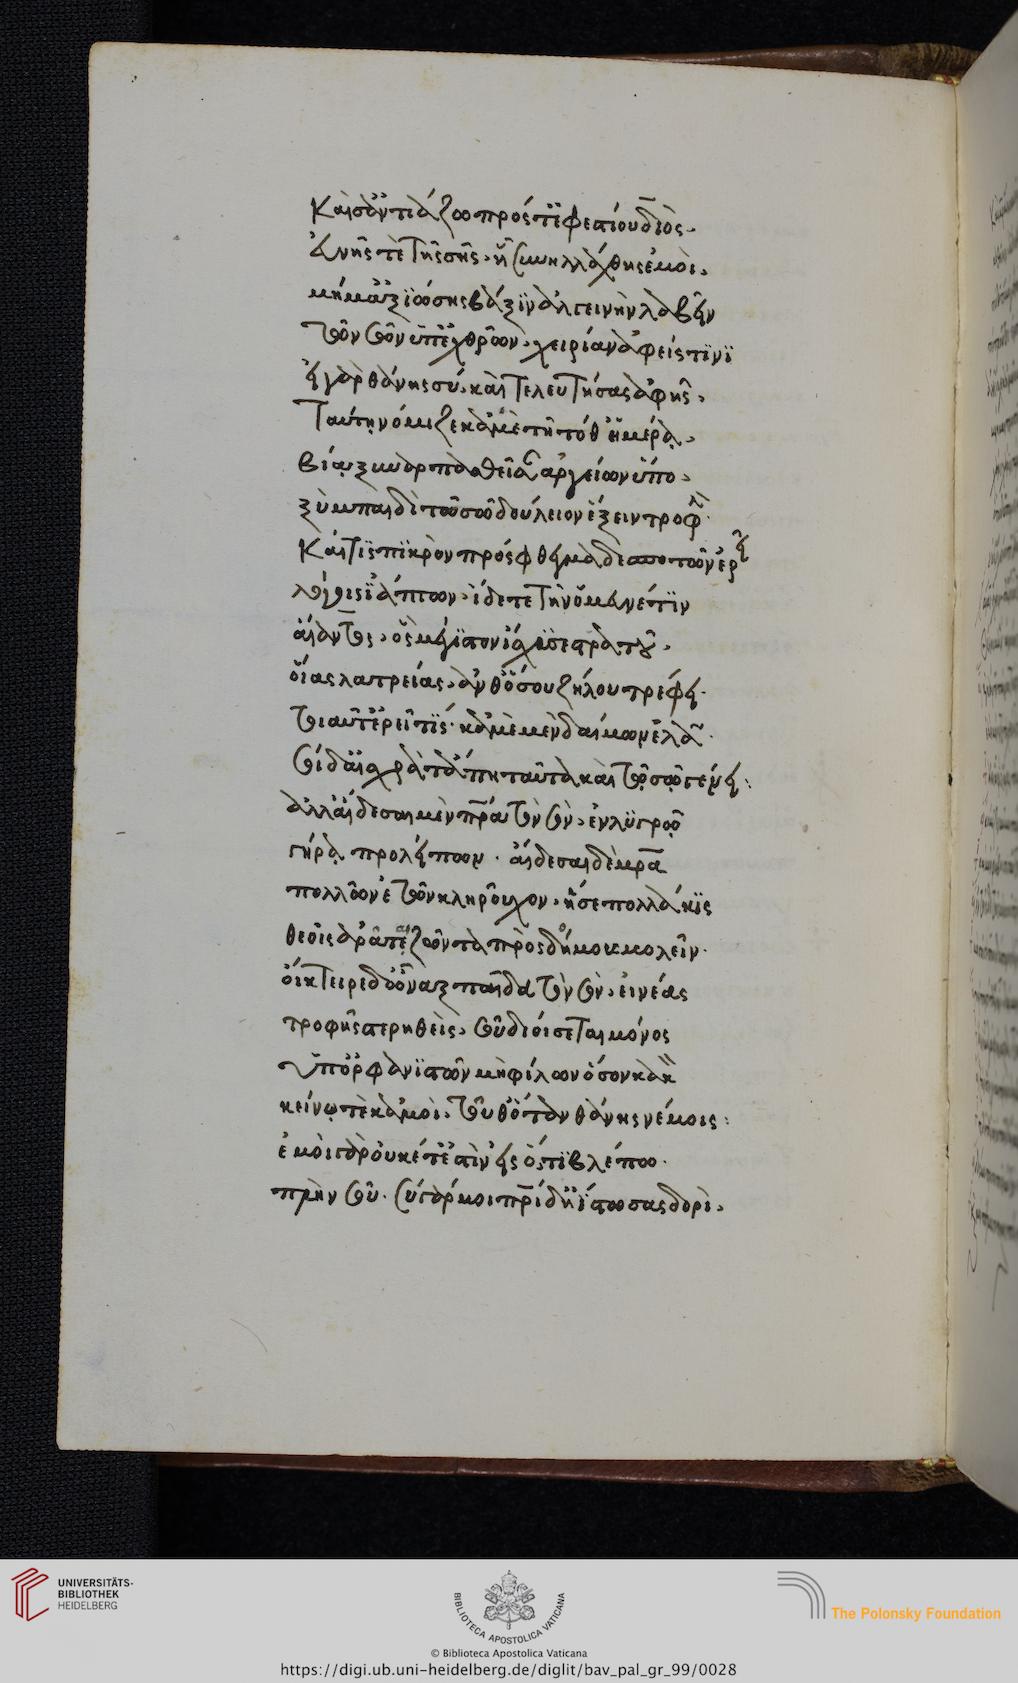 Καί σ' ἀντιάζω πρός τ' ἐφεστίου διὸς.
εὐνῆς τὲ τῆς σῆς. ᾗ συνηλλάχθης ἐμοὶ.
μή μ' ἀξιώσης βάξιν ἀλγεινὴν λαβεῖν
τῶν σῶν ὑπ' ἐχθρῶν. χειρίαν ἀφείς τινί
εἰ γὰρ θάνης σύ. καὶ τελευτήσας ἀφῆς.
Ταύτη νόμιζε κἀμὲ τῆ τόθ' ἡμέρα.
βία ξυναρπασθεῖσαν ἀργείων ὕπο.
ξὺν παιδὶ τῶ σῶ δουλείον ἕξειν τροφὴν.
Καί τις πικρὸν πρόσφθεγμα δεσποτῶν ἐρεῖ
λόγοις ἰάπτων. ἴδετε τὴν ὁμευνέτιν
αἴαντος. ὃς μέγιστον ἴσχυσε στρατοῦ.
οἵας λατρείας. ἀνθ' ὅσου ζήλου τρέφει.
τοιαῦτ' ἐρεῖ τίς. κἀμὲ μὲν δαίμων ἐλᾶ.
σοὶ δ' αἰσχρὰ τἄπη ταῦτα καὶ τῶ σῶ γένει:
ἀλλ' αἴδεσαι μὲν πρα τὸν σὸν. ἐν λυγρῶ
γήρα προλείπων. αἴδεσαι δὲ μρα
πολλῶν ἐτῶν κληροῦχον. ἥ σε πολλάκις
θεοῖς ἀρᾶται ζῶντα πρὸς δόμους μολεῖν.
οἴκτειρε δ' ὦναξ παῖδα τὸν σὸν. εἰ νέας
τροφῆς στερηθεὶς. σοῦ διοίσεται μόνος
ὑπ' ὀρφανιστῶν μὴ φίλων ὅσον κακὸν
κείνω τὲ κἀμοὶ. τοῦθ' ὅταν θάνης νέμοις:
ἐμοὶ γὰρ οὐκέτ' ἐστὶν εἰς ὅτι βλέπω.
πλὴν σοῦ. σύ γάρ μοι πρίδ' ᾔστωσας δορὶ.
UNIVERSITÄTS-
BIBLIOTHEK
HEIDELBERG
BIBLIOTECA APOSTOLICA VATICANA
The Polonsky Foundation
© Biblioteca Apostolica Vaticana
https://digi.ub.uni-heidelberg.de/diglit/bav_pal_gr_99/0028